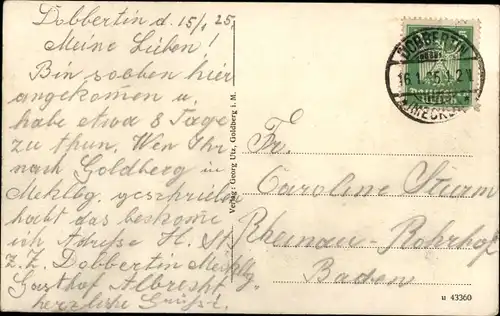 Dobbertin d. 15/1 25.
Meine Lieben!
Bin soeben hier
angekommen u.
habe etwa 8 Tage
zu thun. Wen Ihr
nach Goldberg in
Meklbg. geschrieben
habt das bekome
ich Adresse H. St
z. Z. Dobbertin Meklbg
Gasthof Albrecht
herzliche Grüsse
Verlag: Georg Utz, Goldberg i. M.
DOBBERTIN
16.1.25
(MECKLB)
Fr.
Caroline Sturm
Rheinau-Rohrhof
Baden
u 43360